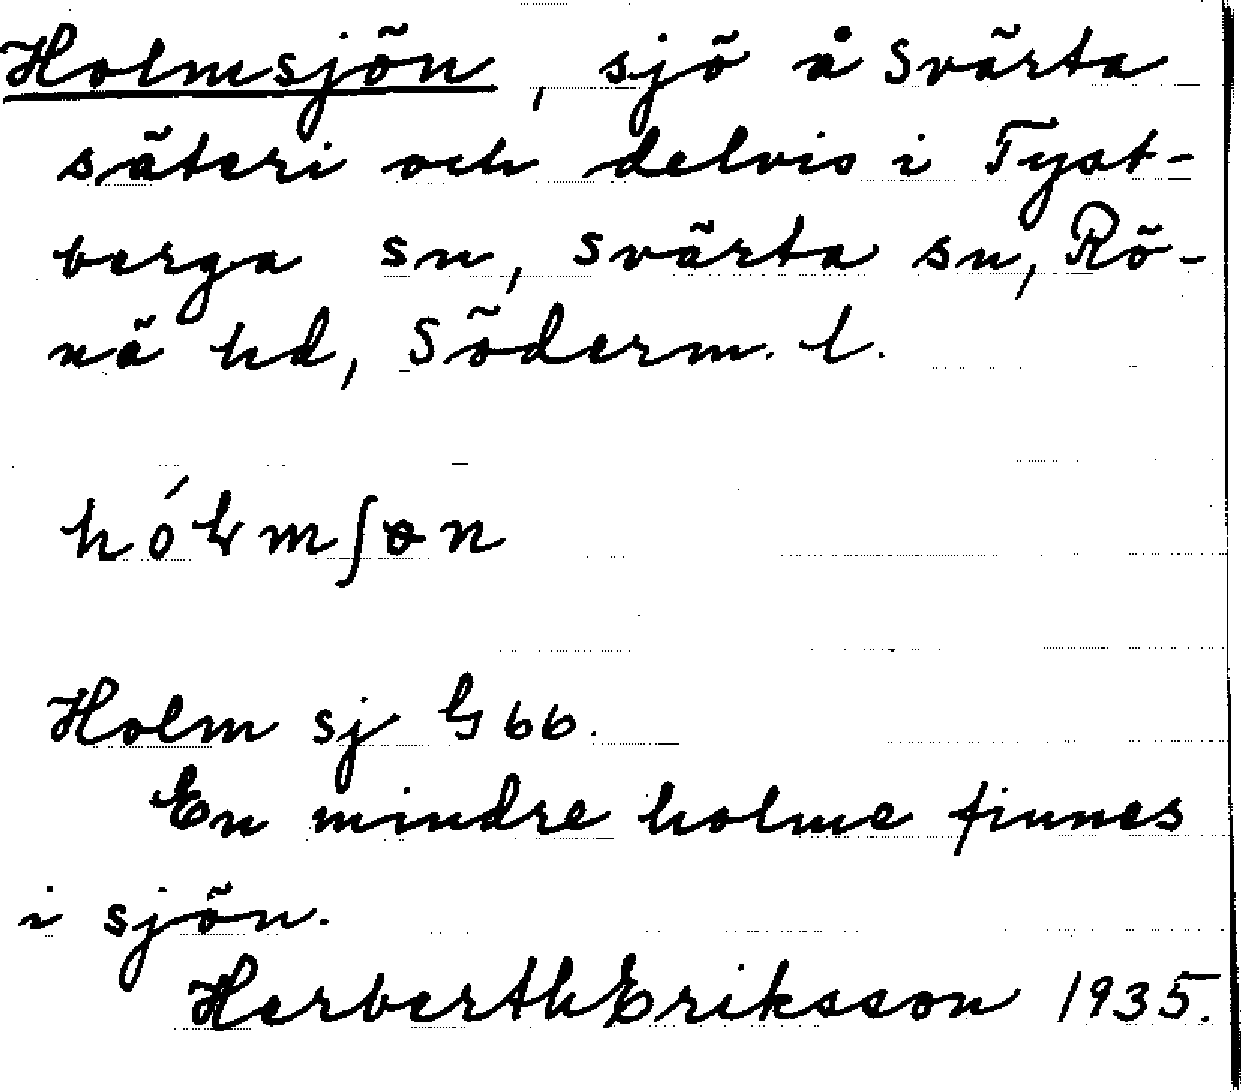 Holmsjön, sjö å Svärta
säteri och delvis i Tyst-
berga sn, Svärta sn, Rö-
nä hd, Söderm. l.
Holm sj G 66.
En mindre holme finnes
i sjön.
Herberth Eriksson 1935.